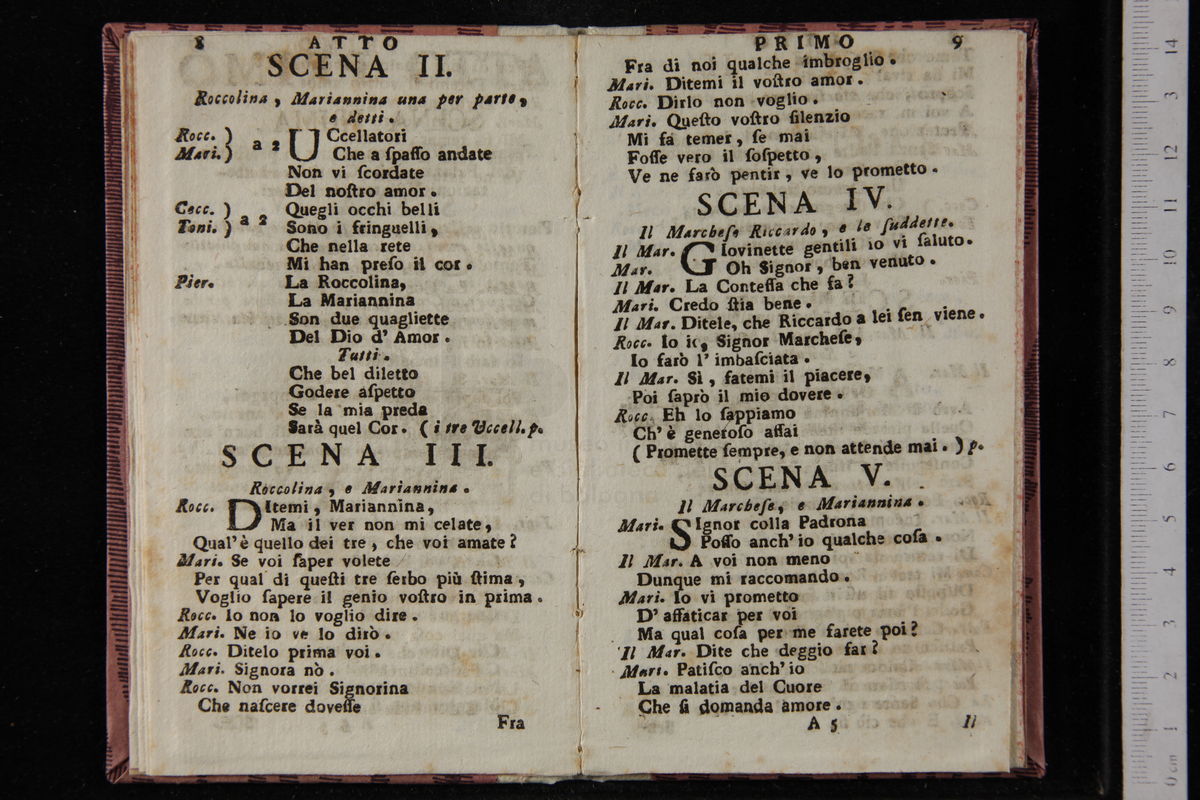 8 ATTO
SCENA II.
Roccolina, Mariannina una per parte,
e detti.
Rocc. ) a 2 UCcellatori
Mari. ) Che a ſpaſſo andate
Non vi ſcordate
Del noſtro amor.
Cecc. ) a 2 Quegli occhi belli
Toni. ) Sono i fringuelli,
Che nella rete
Mi han preſo il cor.
Pier. La Roccolina,
La Mariannina
Son due quagliette
Del Dio d' Amor.
Tutti.
Che bel diletto
Godere aſpetto
Se la mia preda
Sarà quel Cor. ( i tre Uccell. p.
SCENA III.
Roccolina, e Mariannina.
Rocc. DItemi, Mariannina,
Ma il ver non mi celate,
Qual' è quello dei tre, che voi amate?
Mari. Se voi ſaper volete
Per qual di queſti tre ſerbo più ſtima,
Voglio ſapere il genio voſtro in prima.
Rocc. Io non lo voglio dire.
Mari. Ne io ve lo dirò.
Rocc. Ditelo prima voi.
Mari. Signora nò.
Rocc. Non vorrei Signorina
Che naſcere doveſſe
Fra
PRIMO 9
Fra di noi qualche imbroglio.
Mari. Ditemi il voſtro amor.
Rocc. Dirlo non voglio.
Mari. Queſto voſtro ſilenzio
Mi fa temer, ſe mai
Foſſe vero il ſoſpetto,
Ve ne farò pentir, ve lo prometto.
SCENA IV.
Il Marcheſe Riccardo, e le ſuddette.
Il Mar. GIovinette gentili io vi ſaluto.
Mar. Oh Signor, ben venuto.
Il Mar. La Conteſſa che fa?
Mari. Credo ſtia bene.
Il Mar. Ditele, che Riccardo a lei ſen viene.
Rocc. Io Signor Marcheſe,
Io farò l' imbaſciata.
Il Mar. Sì, fatemi il piacere,
Poi ſaprò il mio dovere.
Rocc. Eh lo ſappiamo
Ch' è generoſo aſſai
( Promette ſempre, e non attende mai. ) p.
SCENA V.
Il Marcheſe, e Mariannina.
Mari. SIgnor colla Padrona
Poſſo anch' io qualche coſa.
Il Mar. A voi non meno
Dunque mi raccomando.
Mari. Io vi prometto
D' affaticar per voi
Ma qual coſa per me farete poi?
Il Mar. Dite che deggio far?
Mari. Patiſco anch' io
La malatia del Cuore
Che ſi domanda amore.
A 5 Il
0 cm 1 2 3 4 5 6 7 8 9 10 11 12 3 14